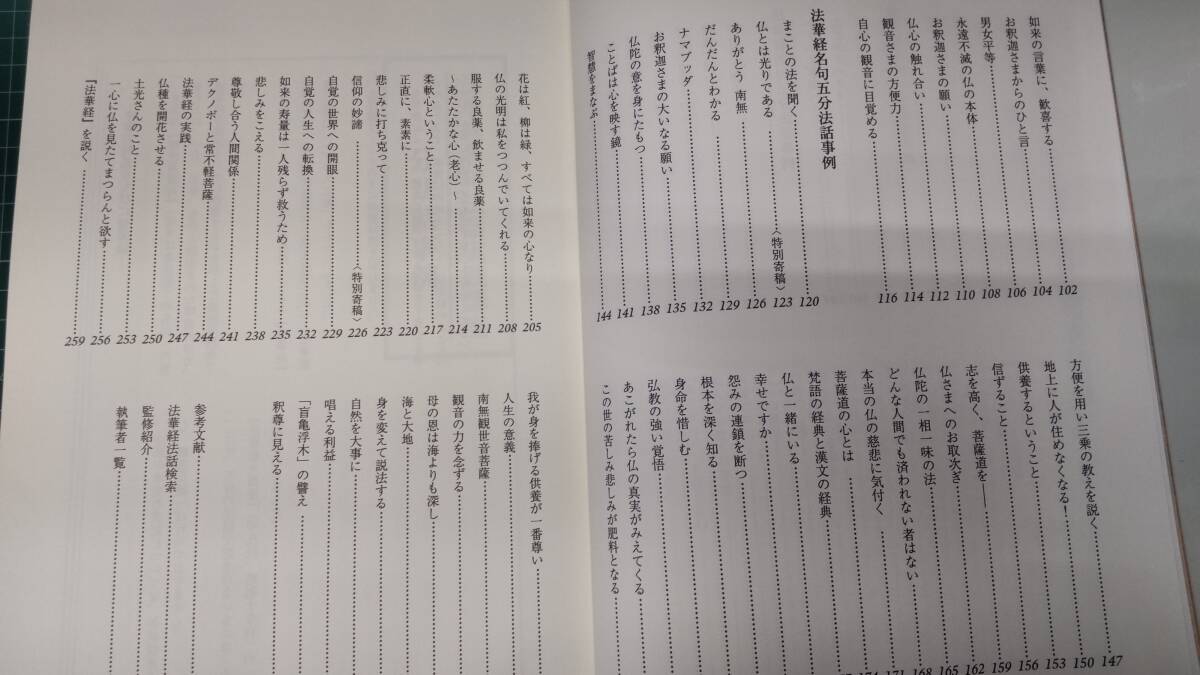 如来の言葉に、歓喜する 102
お釈迦さまからのひと言 104
男女平等 106
永遠不滅の仏の本体 108
お釈迦さまの願い 110
仏心の触れ合い 112
観音さまの方便力 114
自心の観音に目覚める 116
法華経名句五分法話事例
まことの法を聞く 120
仏とは光りである 〈特別寄稿〉 123
ありがとう 南無 126
だんだんとわかる 129
ナマブッダ 132
お釈迦さまの大いなる願い 135
仏陀の意を身にたもつ 138
ことばは心を映す鏡 141
智慧をまなぶ 144
方便を用い三乗の教えを説く 147
地上に人が住めなくなる! 150
供養するということ 153
信ずること 156
志を高く、菩薩道を── 159
仏さまへのお取次ぎ 162
仏陀の一相一味の法 165
どんな人間でも済われない者はない 168
本当の仏の慈悲に気付く 171
菩薩道の心とは 174
梵語の経典と漢文の経典
仏と一緒にいる
幸せですか
怨みの連鎖を断つ
根本を深く知る
身命を惜しむ
弘教の強い覚悟
あこがれたら仏の真実がみえてくる
この世の苦しみ悲しみが肥料となる
花は紅、柳は緑、すべては如来の心なり 205
仏の光明は私をつつんでいてくれる 208
服する良薬、飲ませる良薬 211
～あたたかな心(老心)～ 214
柔軟心ということ 217
正直に、素素に 220
悲しみに打ち克って 223
信仰の妙諦 〈特別寄稿〉 226
自覚の世界への開眼 229
自覚の人生への転換 232
如来の寿量は一人残らず救うため 235
悲しみをこえる 238
尊敬し合う人間関係 241
デクノボーと常不軽菩薩 244
法華経の実践 247
仏種を開花させる 250
土光さんのこと 253
一心に仏を見たてまつらんと欲す 256
『法華経』を説く 259
我が身を捧げる供養が一番尊い
人生の意義
南無観世音菩薩
観音の力を念ずる
母の恩は海よりも深し
海と大地
身を変えて説法する
自然を大事に
唱える利益
「盲亀浮木」の譬え
釈尊に見える
参考文献
法華経法話検索
監修紹介
執筆者一覧